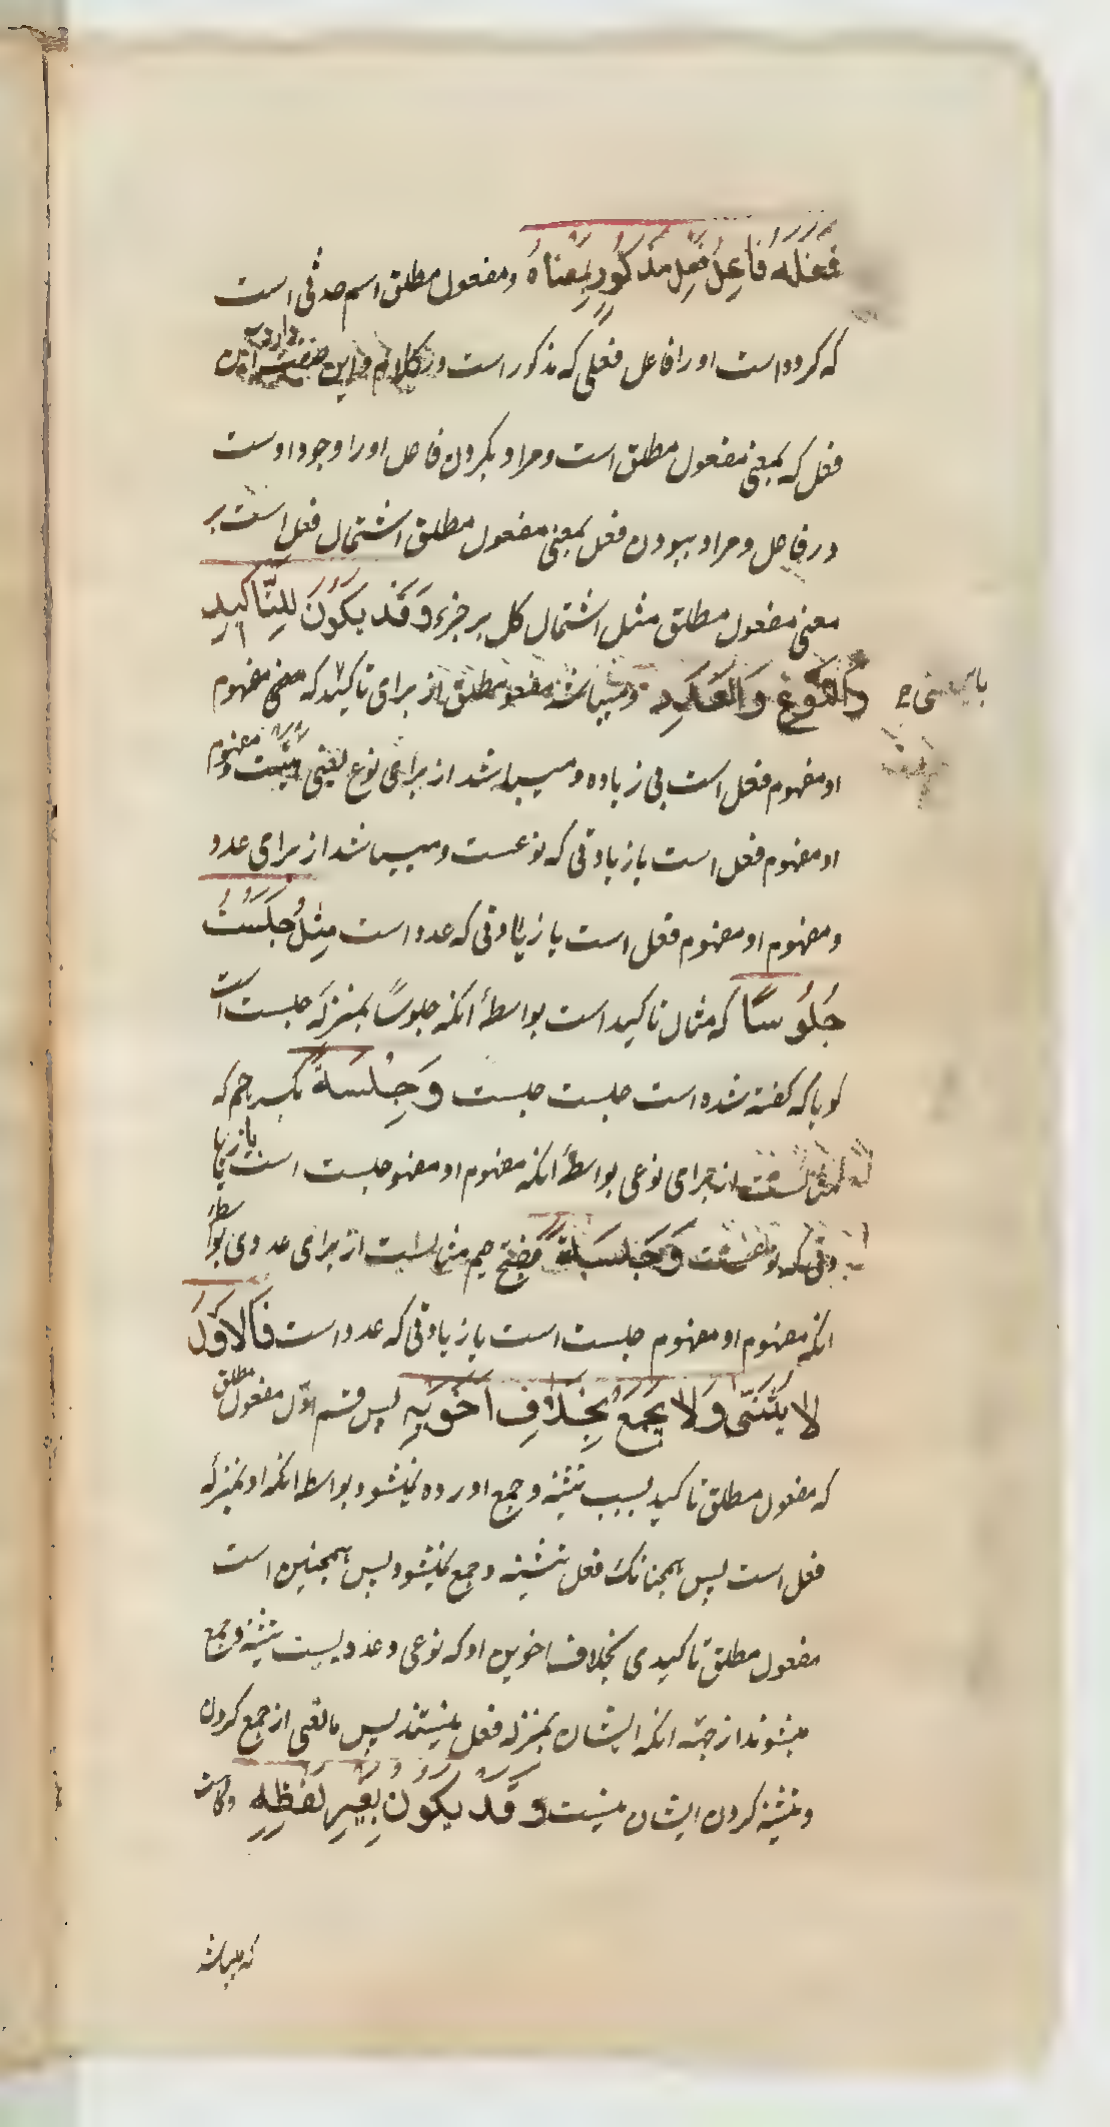 فَعَلَهُ فَاعِلُ فِعْلٍ مَذْكُورٍ بِمَعْنَاهُ ومفعول مطلق اسم حدثی است
که کرده است او را فاعل فعلی که مذکور است در کلام و این صفت دارد آن
فعل که بمعنی مفعول مطلق است و مراد بکردن فاعل او را وجود اوست
در فاعل و مراد ببودن فعل بمعنی مفعول مطلق اشتمال فعل است بر
معنی مفعول مطلق مثل اشتمال کل بر جزء وَقَدْ يَكُونُ لِلتَّأكِيدِ
وَالنَّوْعِ وَالْعَدَدِ ومیباشد مفعول مطلق از برای تاکید که معنی مفهوم
او مفهوم فعل است بی زیاده ومیباشد از برای نوع یعنی ومفهوم
او مفهوم فعل است با زیادتی که نوعست ومیباشد از برای عدد
ومفهوم او مفهوم فعل است با زیادتی که عدد است مِثْلُ جَلَسْتُ
جُلُوسًا که مثال تاکید است بواسطهٔ انکه جلوسًا بمنزله جلست است
کویا که کفته شده است جلست جلست وَجِلْسَةً بکسر جیم که
از برای نوعی بواسطهٔ انکه مفهوم او مفهوم جلست است با زیا
دتی که نوعست وَجَلْسَةً بفتح جیم مثالست از برای عددی بواسطهٔ
انکه مفهوم او مفهوم جلست است با زیادتی که عدد است فَالاَوَّلُ
لا يُثَنّى وَلا يُجْمَعُ بِخِلافِ اَخَوَيْهِ پس قسم اوّل مفعول مطلق
که مفعول مطلق تاکید یست تثنیه وجمع اورده نمیشود بواسطه انکه او بمنزلهٔ
فعل است پس همچنانکه فعل تثنیه وجمع نمیشود پس همچنین است
مفعول مطلق تاکیدی بخلاف اخوین او که نوعی وعددیست تثنیه وجمع
میشوند از جهة انکه ایشان بمنزله فعل نیستند پس مانعی از جمع کردن
وتثنیه کردن ایشان نیست وَقَدْ يَكُونُ بِغَيْرِ لَفْظِهِ وکاهست
که میباشد